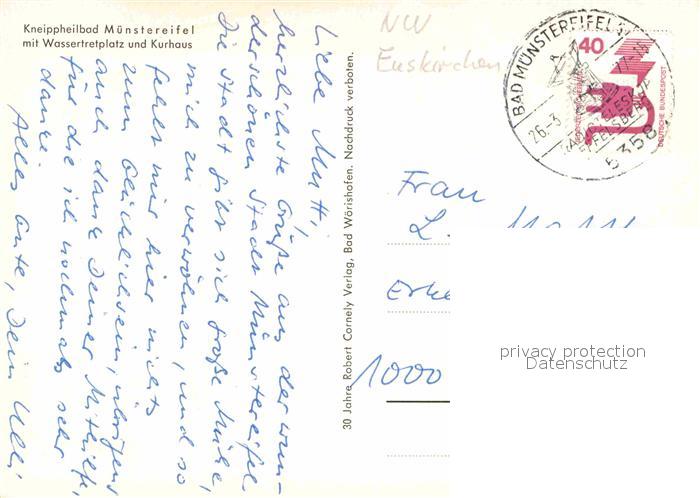 Kneippheilbad Münstereifel
mit Wassertretplatz und Kurhaus
Liebe Mutti,
herzlichste Grüße aus der wun-
derschönen Stadt Münstereifel.
Die Stadt gibt sich große Mühe,
mich zu verwöhnen, und so
fehlt mir hier nichts
zum Glücklichsein, übrigens
auch dank Deiner Mithilfe,
für die ich nochmals sehr
danke.
Alles Gute, Dein Ulli
30 Jahre Robert Cornely Verlag, Bad Wörishofen. Nachdruck verboten.
NW
Euskirchen
BAD MÜNSTEREIFEL
26.-3.
5358
40
DEUTSCHE BUNDESPOST
Frau
L.
Erke
1000
privacy protection
Datenschutz